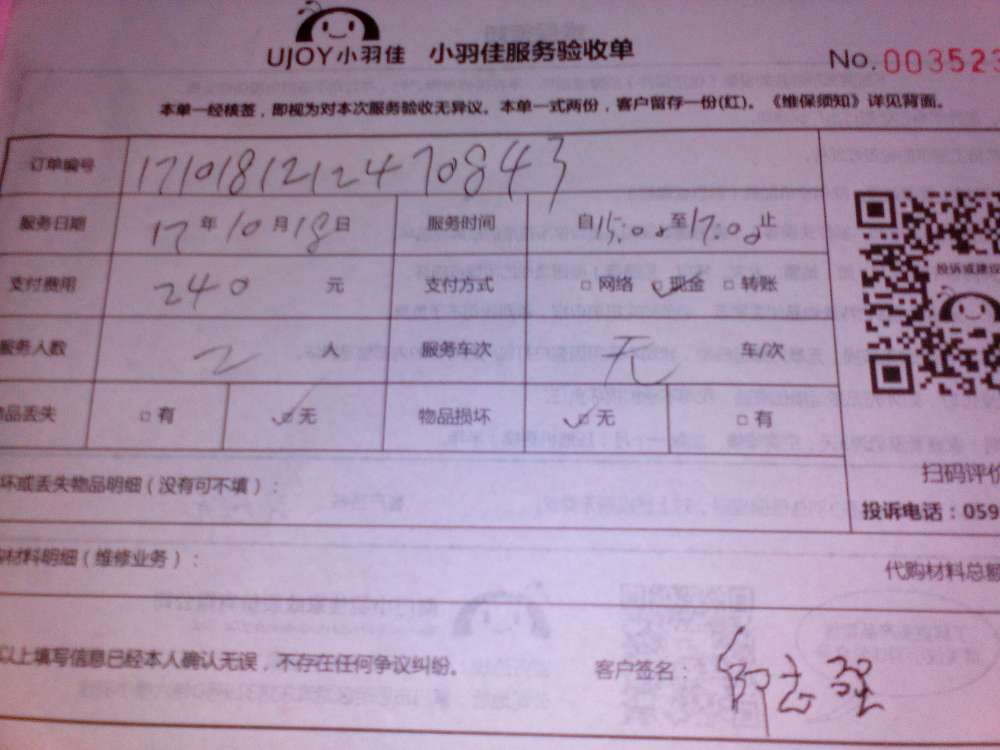 UJOY小羽佳 小羽佳服务验收单 No. 003523
本单一经核签，即视为对本次服务验收无异议。本单一式两份，客户留存一份(红)。《维保须知》详见背面。
订单编号 1710181212470843
服务日期 17年10月18日 服务时间 自15:00至17:00止
支付费用 240 元 支付方式 □网络 ☑现金 □转账
服务人数 2 人 服务车次 无 车/次
品丢失 □有 ☑无 物品损坏 ☑无 □有
投诉或建议
坏或丢失物品明细（没有可不填）：
扫码评价
投诉电话：059
材料明细（维修业务）：
代购材料总额
以上填写信息已经本人确认无误，不存在任何争议纠纷。 客户签名：